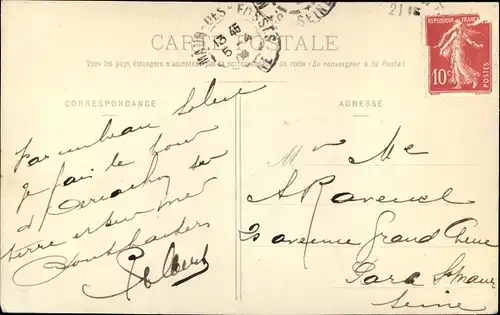 CARTE POSTALE
Tous les pays étrangers n'acceptent pas la correspondance au recto (Se renseigner à la Poste)
CORRESPONDANCE
ADRESSE
MAUR-DES-FOSSÉS
13 45
5
SEINE
21
REPUBLIQUE FRANÇAISE
10c
POSTES
Par un beau Soleil
je fais le tour
d'Arcachon sur
terre et sur mer
Bons baisers
Mr Me
A Ravenel
25 avenue Grand Chêne
Parc St Maur
Seine